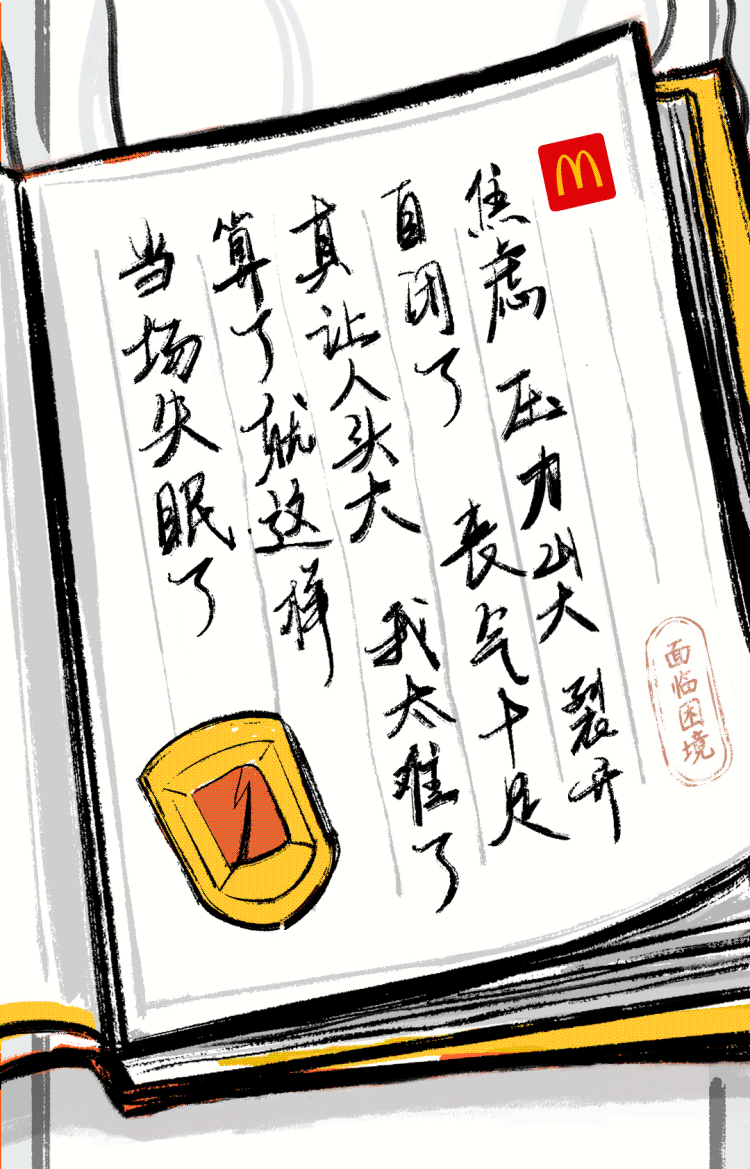 焦虑 压力山大 裂开
自闭了 丧气十足
真让人头大 我太难了
算了就这样
当场失眠了
面临困境